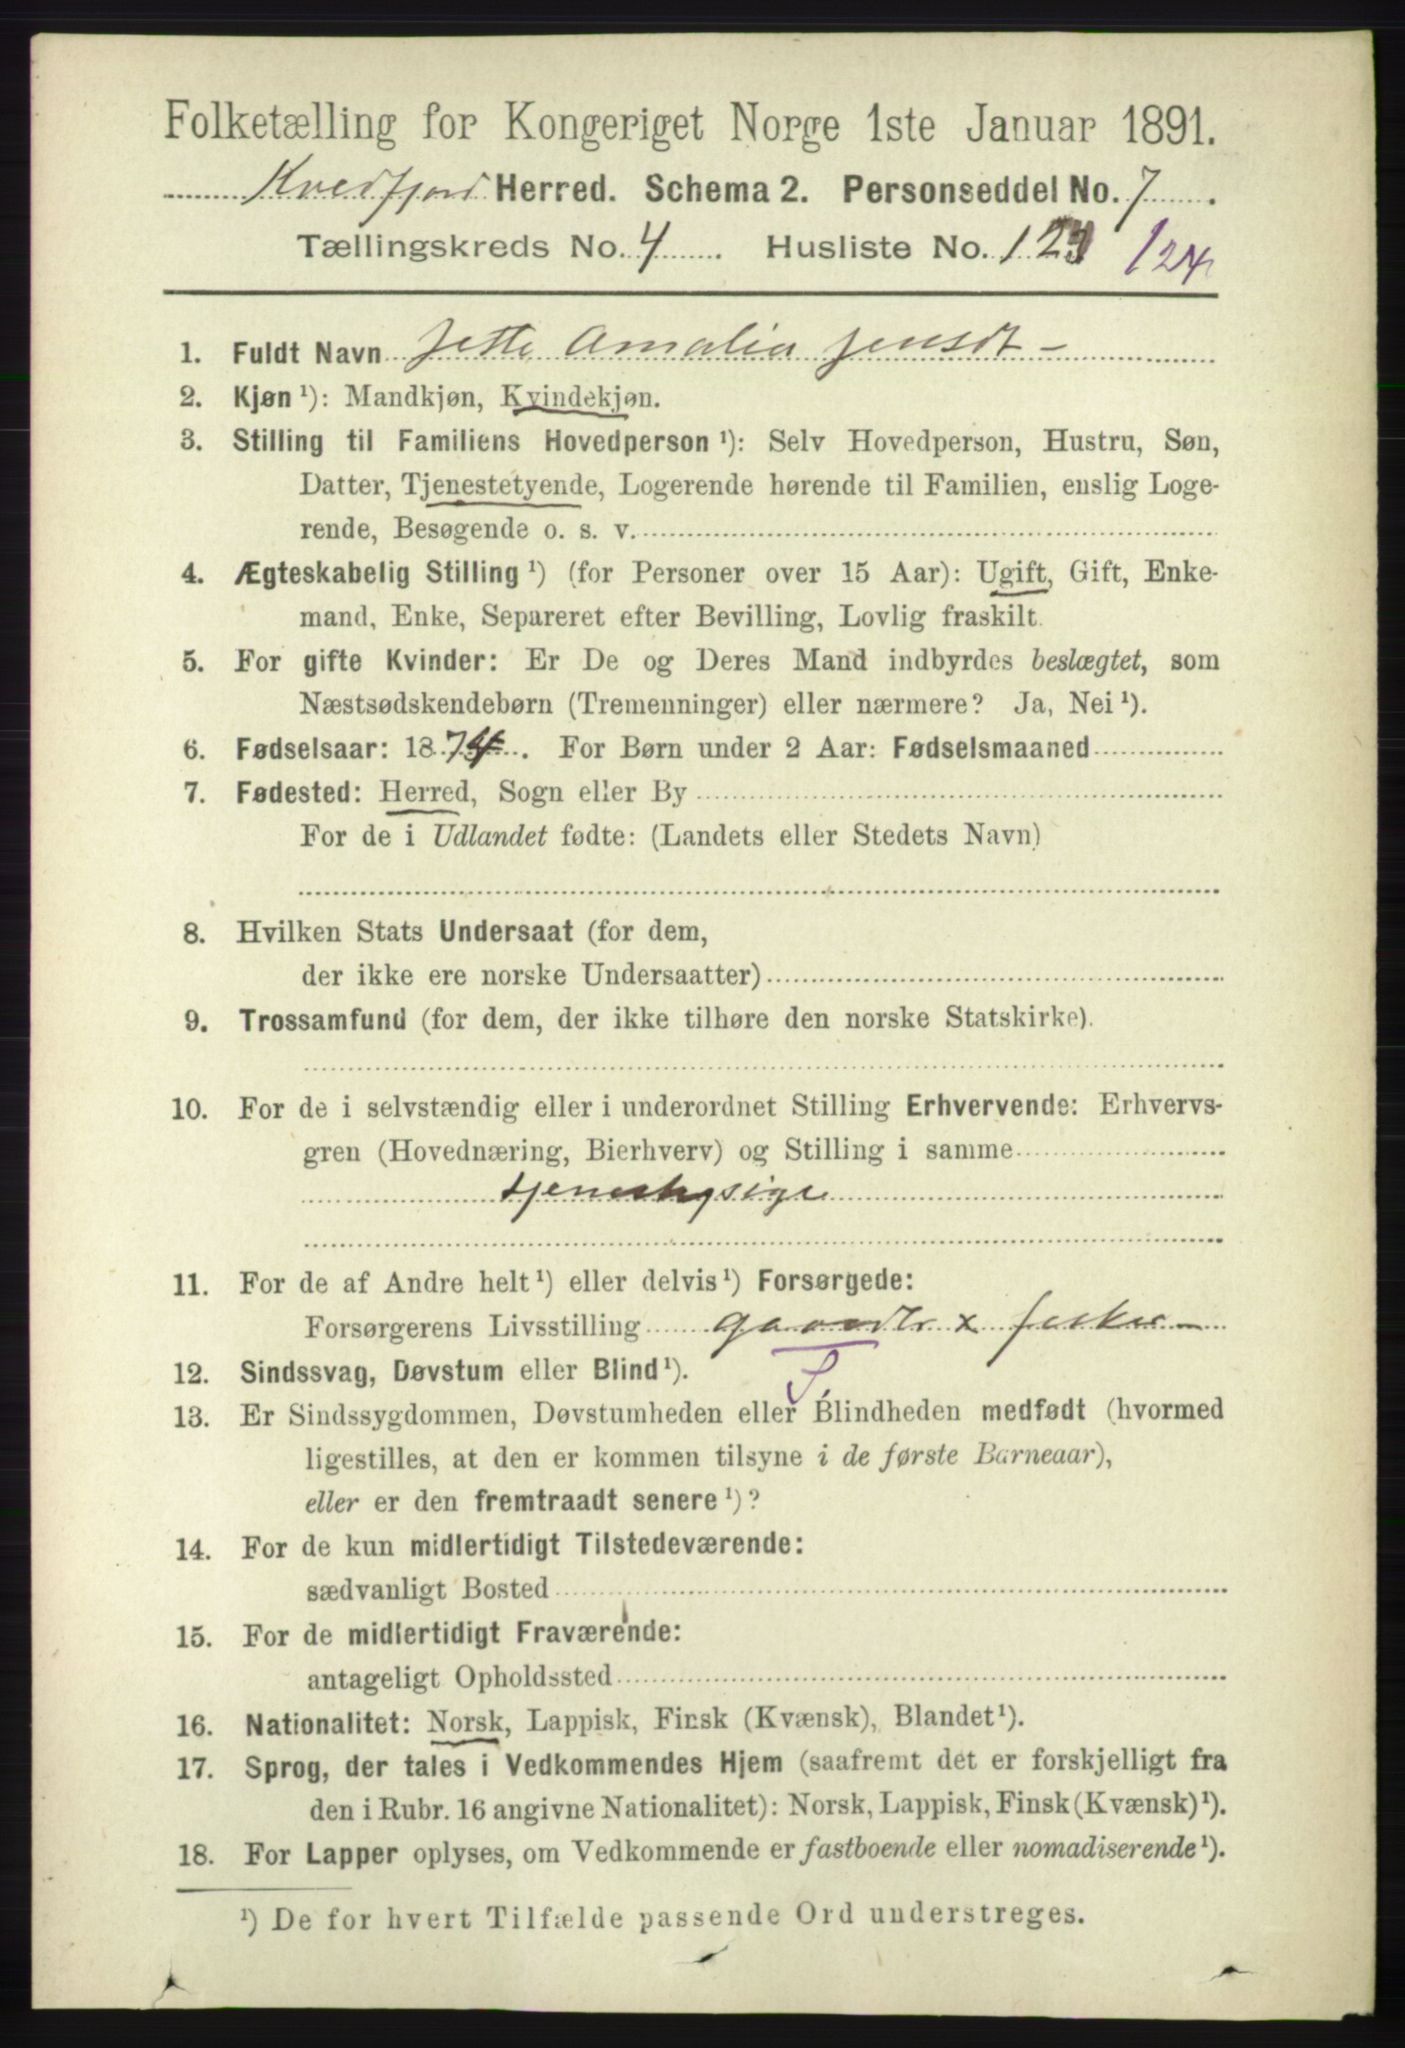 Folketælling for Kongeriget Norge 1ste Januar 1891.
Kvedfjord Herred. Schema 2. Personseddel No. 7.
Tællingskreds No. 4. Husliste No. 123 124
1. Fuldt Navn Jette Amalia Jensdt
2. Kjøn ¹): Mandkjøn, Kvindekjøn.
3. Stilling til Familiens Hovedperson ¹): Selv Hovedperson, Hustru, Søn,
Datter, Tjenestetyende, Logerende hørende til Familien, enslig Loge-
rende, Besøgende o. s. v.
4. Ægteskabelig Stilling ¹) (for Personer over 15 Aar): Ugift, Gift, Enke-
mand, Enke, Separeret efter Bevilling, Lovlig fraskilt.
5. For gifte Kvinder: Er De og Deres Mand indbyrdes beslægtet, som
Næstsødskendebørn (Tremenninger) eller nærmere? Ja, Nei ¹).
6. Fødselsaar: 1874. For Børn under 2 Aar: Fødselsmaaned
7. Fødested: Herred, Sogn eller By
For de i Udlandet fødte: (Landets eller Stedets Navn)
8. Hvilken Stats Undersaat (for dem,
der ikke ere norske Undersaatter)
9. Trossamfund (for dem, der ikke tilhøre den norske Statskirke).
10. For de i selvstændig eller i underordnet Stilling Erhvervende: Erhvervs-
gren (Hovednæring, Bierhverv) og Stilling i samme
11. For de af Andre helt ¹) eller delvis ¹) Forsørgede:
Forsørgerens Livsstilling x fisker
12. Sindssvag, Døvstum eller Blind ¹).
13. Er Sindssygdommen, Døvstumheden eller Blindheden medfødt (hvormed
ligestilles, at den er kommen tilsyne i de første Barneaar),
eller er den fremtraadt senere ¹)?
14. For de kun midlertidigt Tilstedeværende:
sædvanligt Bosted
15. For de midlertidigt Fraværende:
antageligt Opholdssted
16. Nationalitet: Norsk, Lappisk, Finsk (Kvænsk), Blandet ¹).
17. Sprog, der tales i Vedkommendes Hjem (saafremt det er forskjelligt fra
den i Rubr. 16 angivne Nationalitet): Norsk, Lappisk, Finsk (Kvænsk) ¹).
18. For Lapper oplyses, om Vedkommende er fastboende eller nomadiserende ¹).
¹) De for hvert Tilfælde passende Ord understreges.